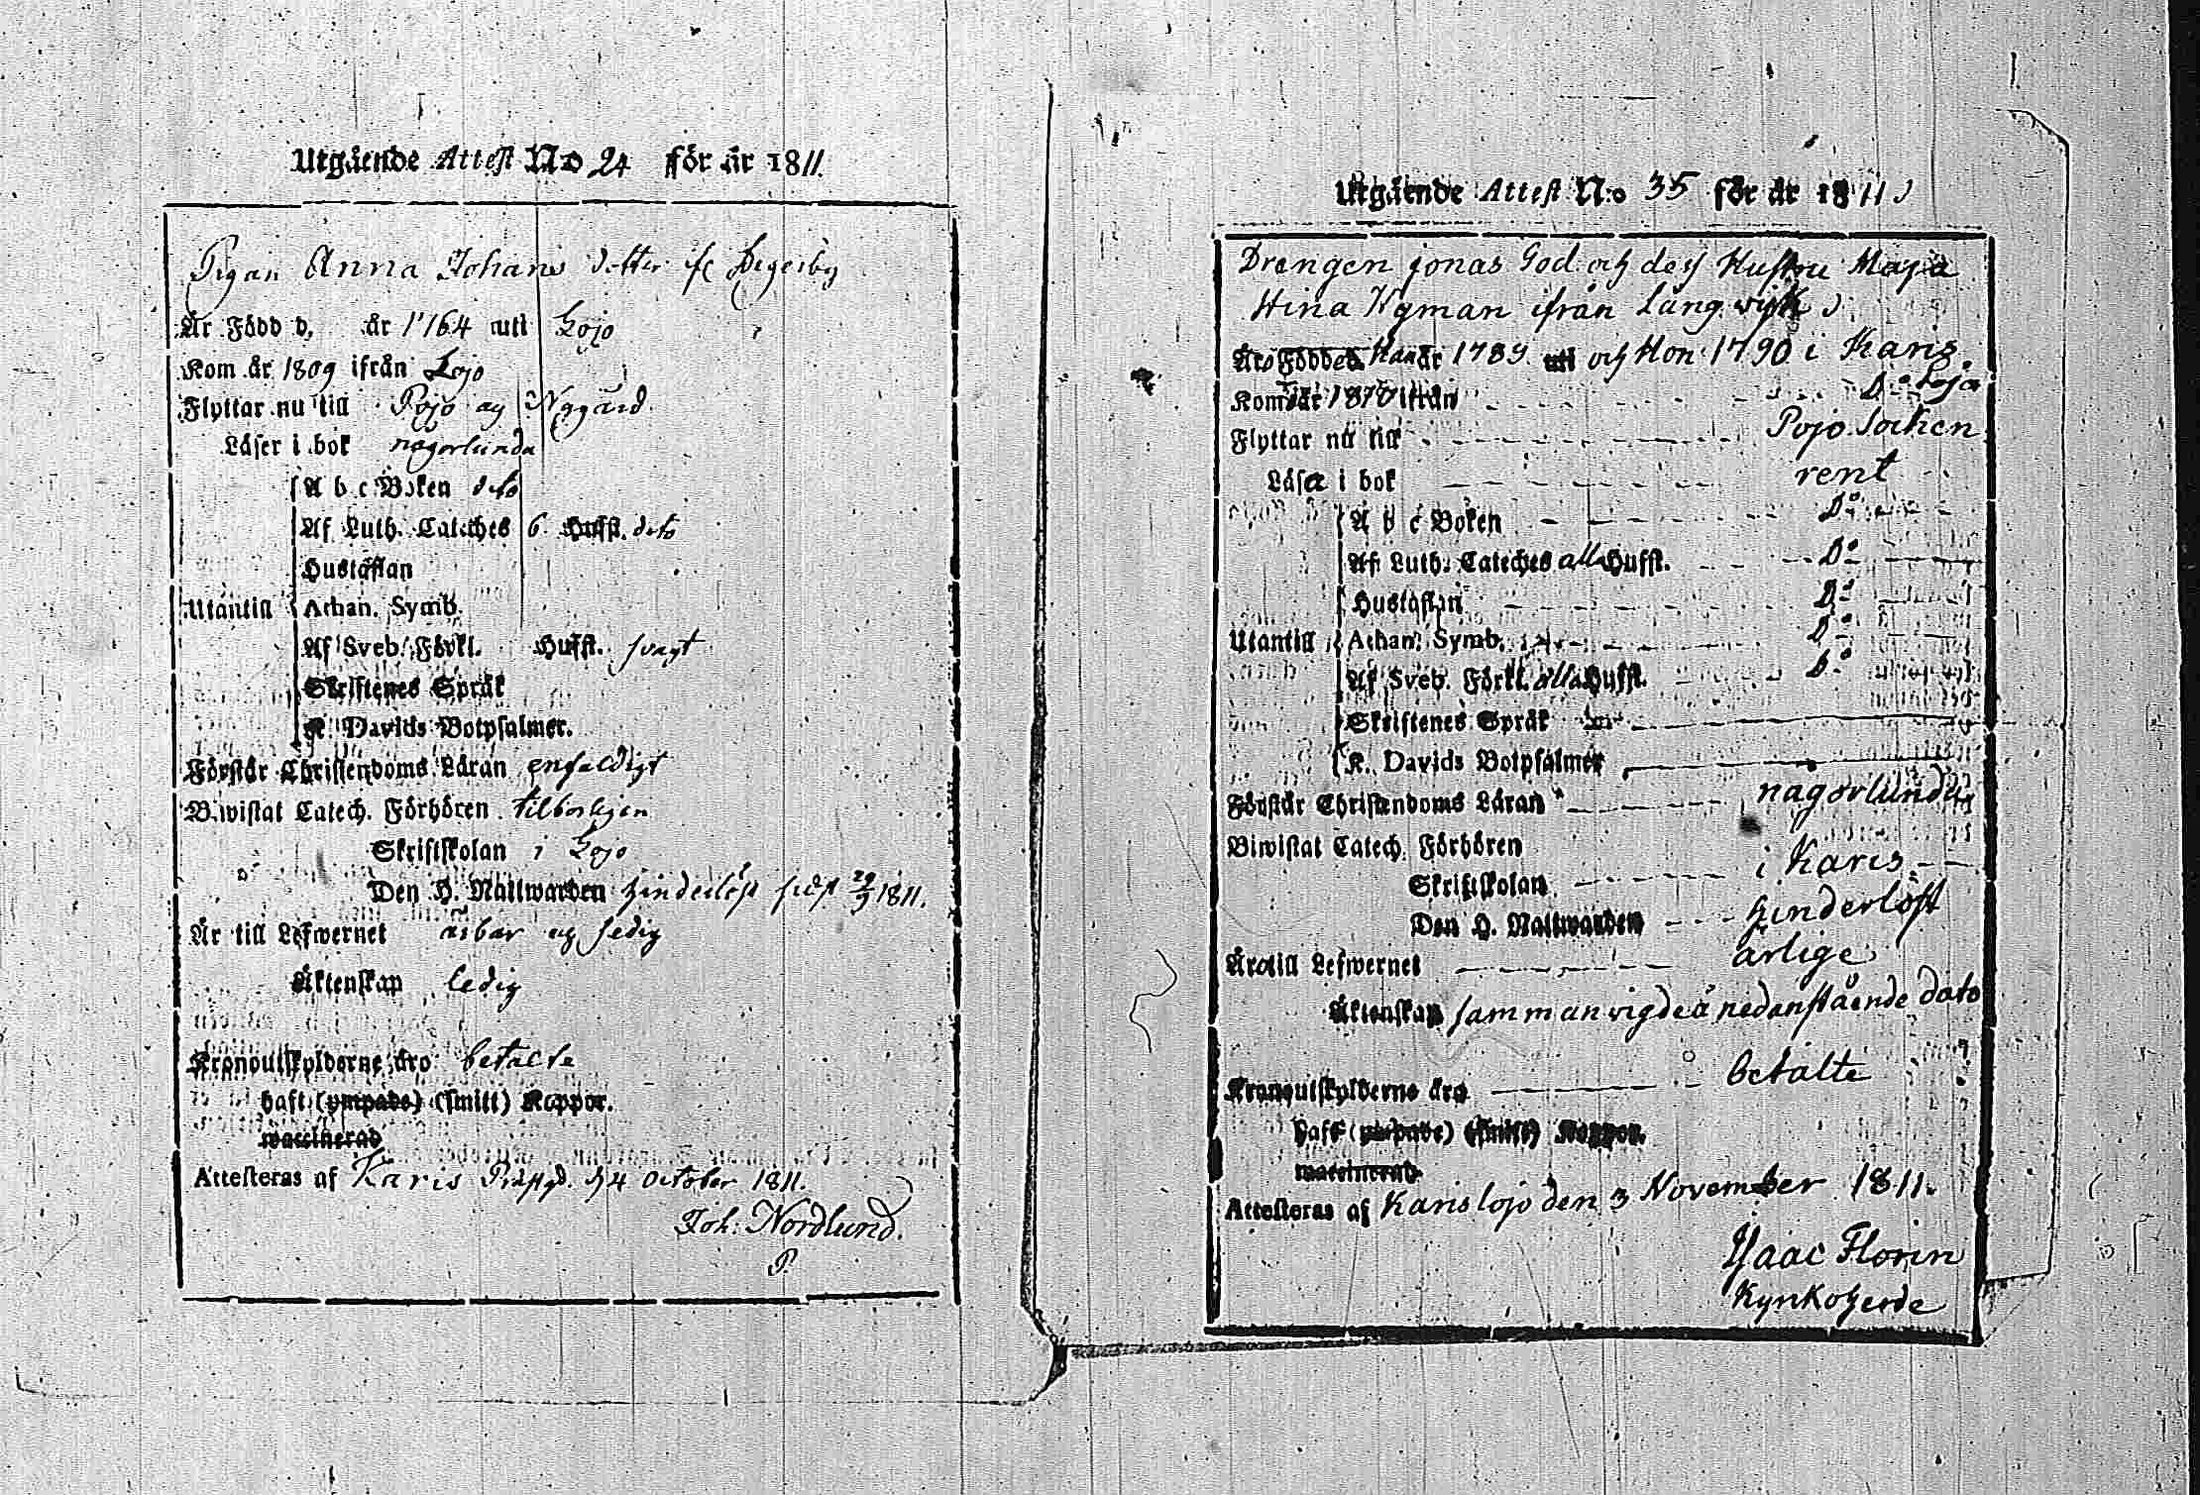 Utgående Attest N:o 24 för år 1811.
Pigan Anna Johans dotter fr Degerby
Är Född d, år 1764 uti Lojo
Kom år 1809 ifrån Lojo
Flyttar nu till Pojo ag Nygård
Läser i bok någorlunda
A b c Boken dito
Af Luth. Cateches 6 Hufst. dito
Hustaflan
Utantill Athan. Symb.
Af Sveb. Förkl. Hufst. svagt
Skriftenes Språk
K. Davids Botpsalmer.
Förstår Christendoms Läran enfaldigt
Biwistat Catech. Förhören tilbörligen
Skriftskolan i Lojo
Den H. Nattwarden hinderlöst sidst 29/9 1811.
Är till Lefwernet ärbar og sedig
Äktenskap ledig
Kronoutskylderne äro betalte
haft (ympade) (smitt) Koppor.
waccinerad
Attesteras af Karis Prästgd. d 4 October 1811.
Joh: Nordlund.
P.
Utgående Attest N:o 35 för år 1811
Drengen Jonas God. och dess Hustru Maja
Stina Nyman ifrån Långwik
Äro Födde Han år 1789 uti och Hon 1790 i Karis
Kom år 1810 ifrån Do Lojo
Flyttar nu till Pojo Socken
Läsa i bok rent
A b c Boken Do
Af Luth. Cateches alla Hufst. Do
Hustaflan Do
Utantill Athan. Symb. Do
Af Sveb. Förkl. alla Hufst. Do
Skriftenes Språk
K. Davids Botpsalmer
Förstår Christendoms Läran någorlunda
Biwistat Catech. Förhören
Skriftskolan i Karis
Den H. Nattwarden hinderlöst
Äro till Lefwernet ärlige
Äktenskap samman vigde å nedanstående dato
Kronoutskylderne äro betalte
haft (ympade) (smitt) Koppor.
waccinerad
Attesteras af Karislojo den 3 November 1811.
Isaac Florin
Kyrkoherde